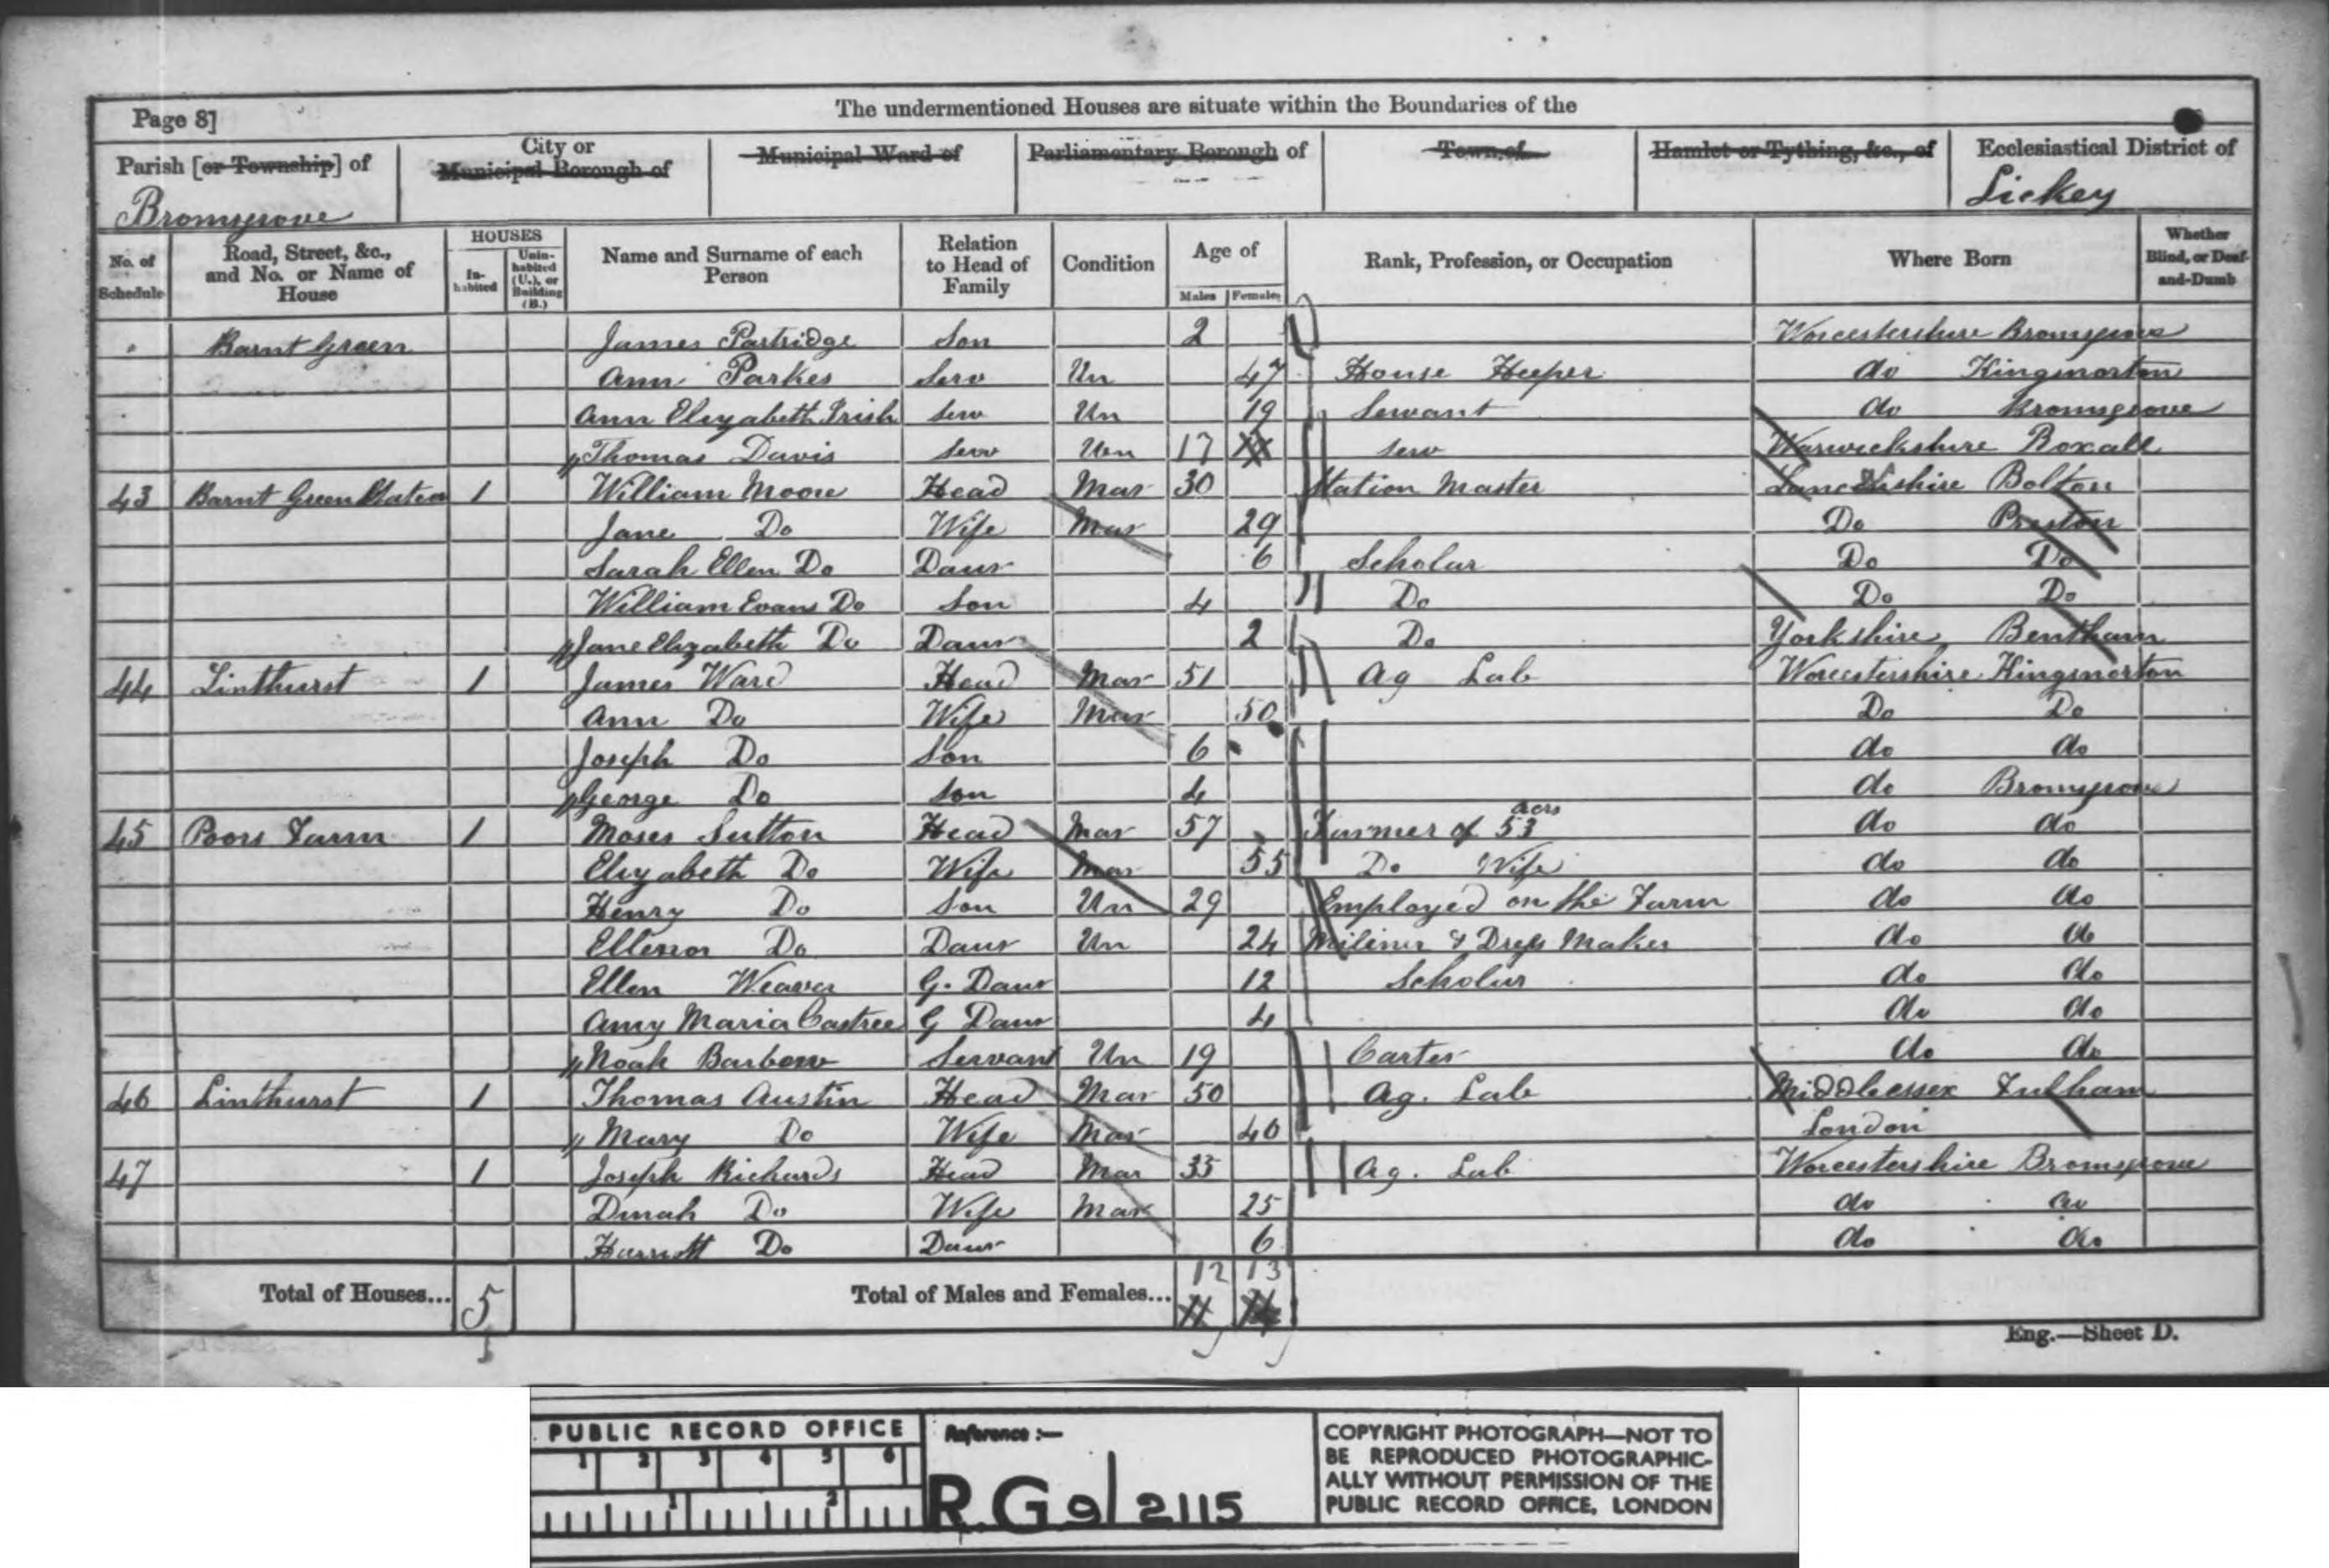 Page 8]
The undermentioned Houses are situate within the Boundaries of the
Parish [or Township] of Bromsgrove
City or Municipal Borough of
Municipal Ward of
Parliamentary Borough of
Town of
Hamlet or Tything, &c., of
Ecclesiastical District of Lickey
No. of Schedule
Road, Street, &c., and No. or Name of House
HOUSES
In-habited
Unin-habited (U.), or Building (B.)
Name and Surname of each Person
Relation to Head of Family
Condition
Age of
Males
Females
Rank, Profession, or Occupation
Where Born
Whether Blind, or Deaf-and-Dumb
Barnt Green James Partridge Son 2 Worcestershire Bromsgrove
Ann Parkes Serv Un 47 House Keeper do Kingsnorton
Ann Elizabeth Irish Serv Un 19 Servant do Bromsgrove
Thomas Davis Serv Un 17 Serv Warwickshire Roxall
43 Barnt Green Station 1 William Moore Head Mar 30 Station Master Lancashire Bolton
Jane Do Wife Mar 29 Do Preston
Sarah Ellen Do Daur 6 Scholar Do Do
William Evans Do Son 4 Do Do Do
Jane Elizabeth Do Daur 2 Do Yorkshire Bentham
44 Linthurst 1 James Ward Head Mar 51 Ag Lab Worcestershire Kingsnorton
Ann Do Wife Mar 50 Do Do
Joseph Do Son 6 do do
George Do Son 4 do Bromsgrove
45 Poors Farm 1 Moses Sutton Head Mar 57 Farmer of 53 acrs do do
Elizabeth Do Wife Mar 55 Do Wife do do
Henry Do Son Un 29 Employed on the Farm do do
Ellenor Do Daur Un 24 Miliner & Dress Maker do do
Ellen Weaver G. Daur 12 Scholar do do
Amy Maria Castree G Daur 4 do do
Noah Barbow Servant Un 19 Carter do do
46 Linthurst 1 Thomas Austin Head Mar 50 Ag. Lab Middlessex Fulham
Mary Do Wife Mar 40 London
47 1 Joseph Richards Head Mar 35 Ag. Lab Worcestershire Bromsgrove
Dinah Do Wife Mar 25 do do
Harriott Do Daur 6 do do
12 13
Total of Houses... 5 Total of Males and Females... 11 14
Eng.—Sheet D.
PUBLIC RECORD OFFICE
1 2 3 4 5 6
1 2
Reference :—
R.G 9/2115
COPYRIGHT PHOTOGRAPH—NOT TO
BE REPRODUCED PHOTOGRAPHIC-
ALLY WITHOUT PERMISSION OF THE
PUBLIC RECORD OFFICE, LONDON